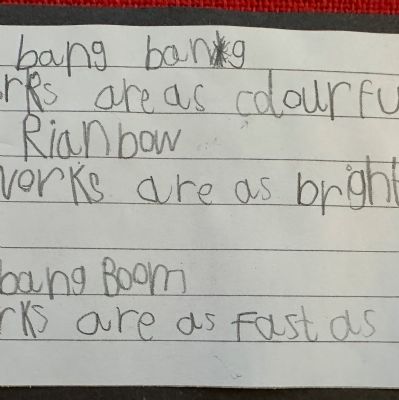 bang bang
rks are as colourfu
Rianbow
works are as bright
bang Boom
rks are as fast as